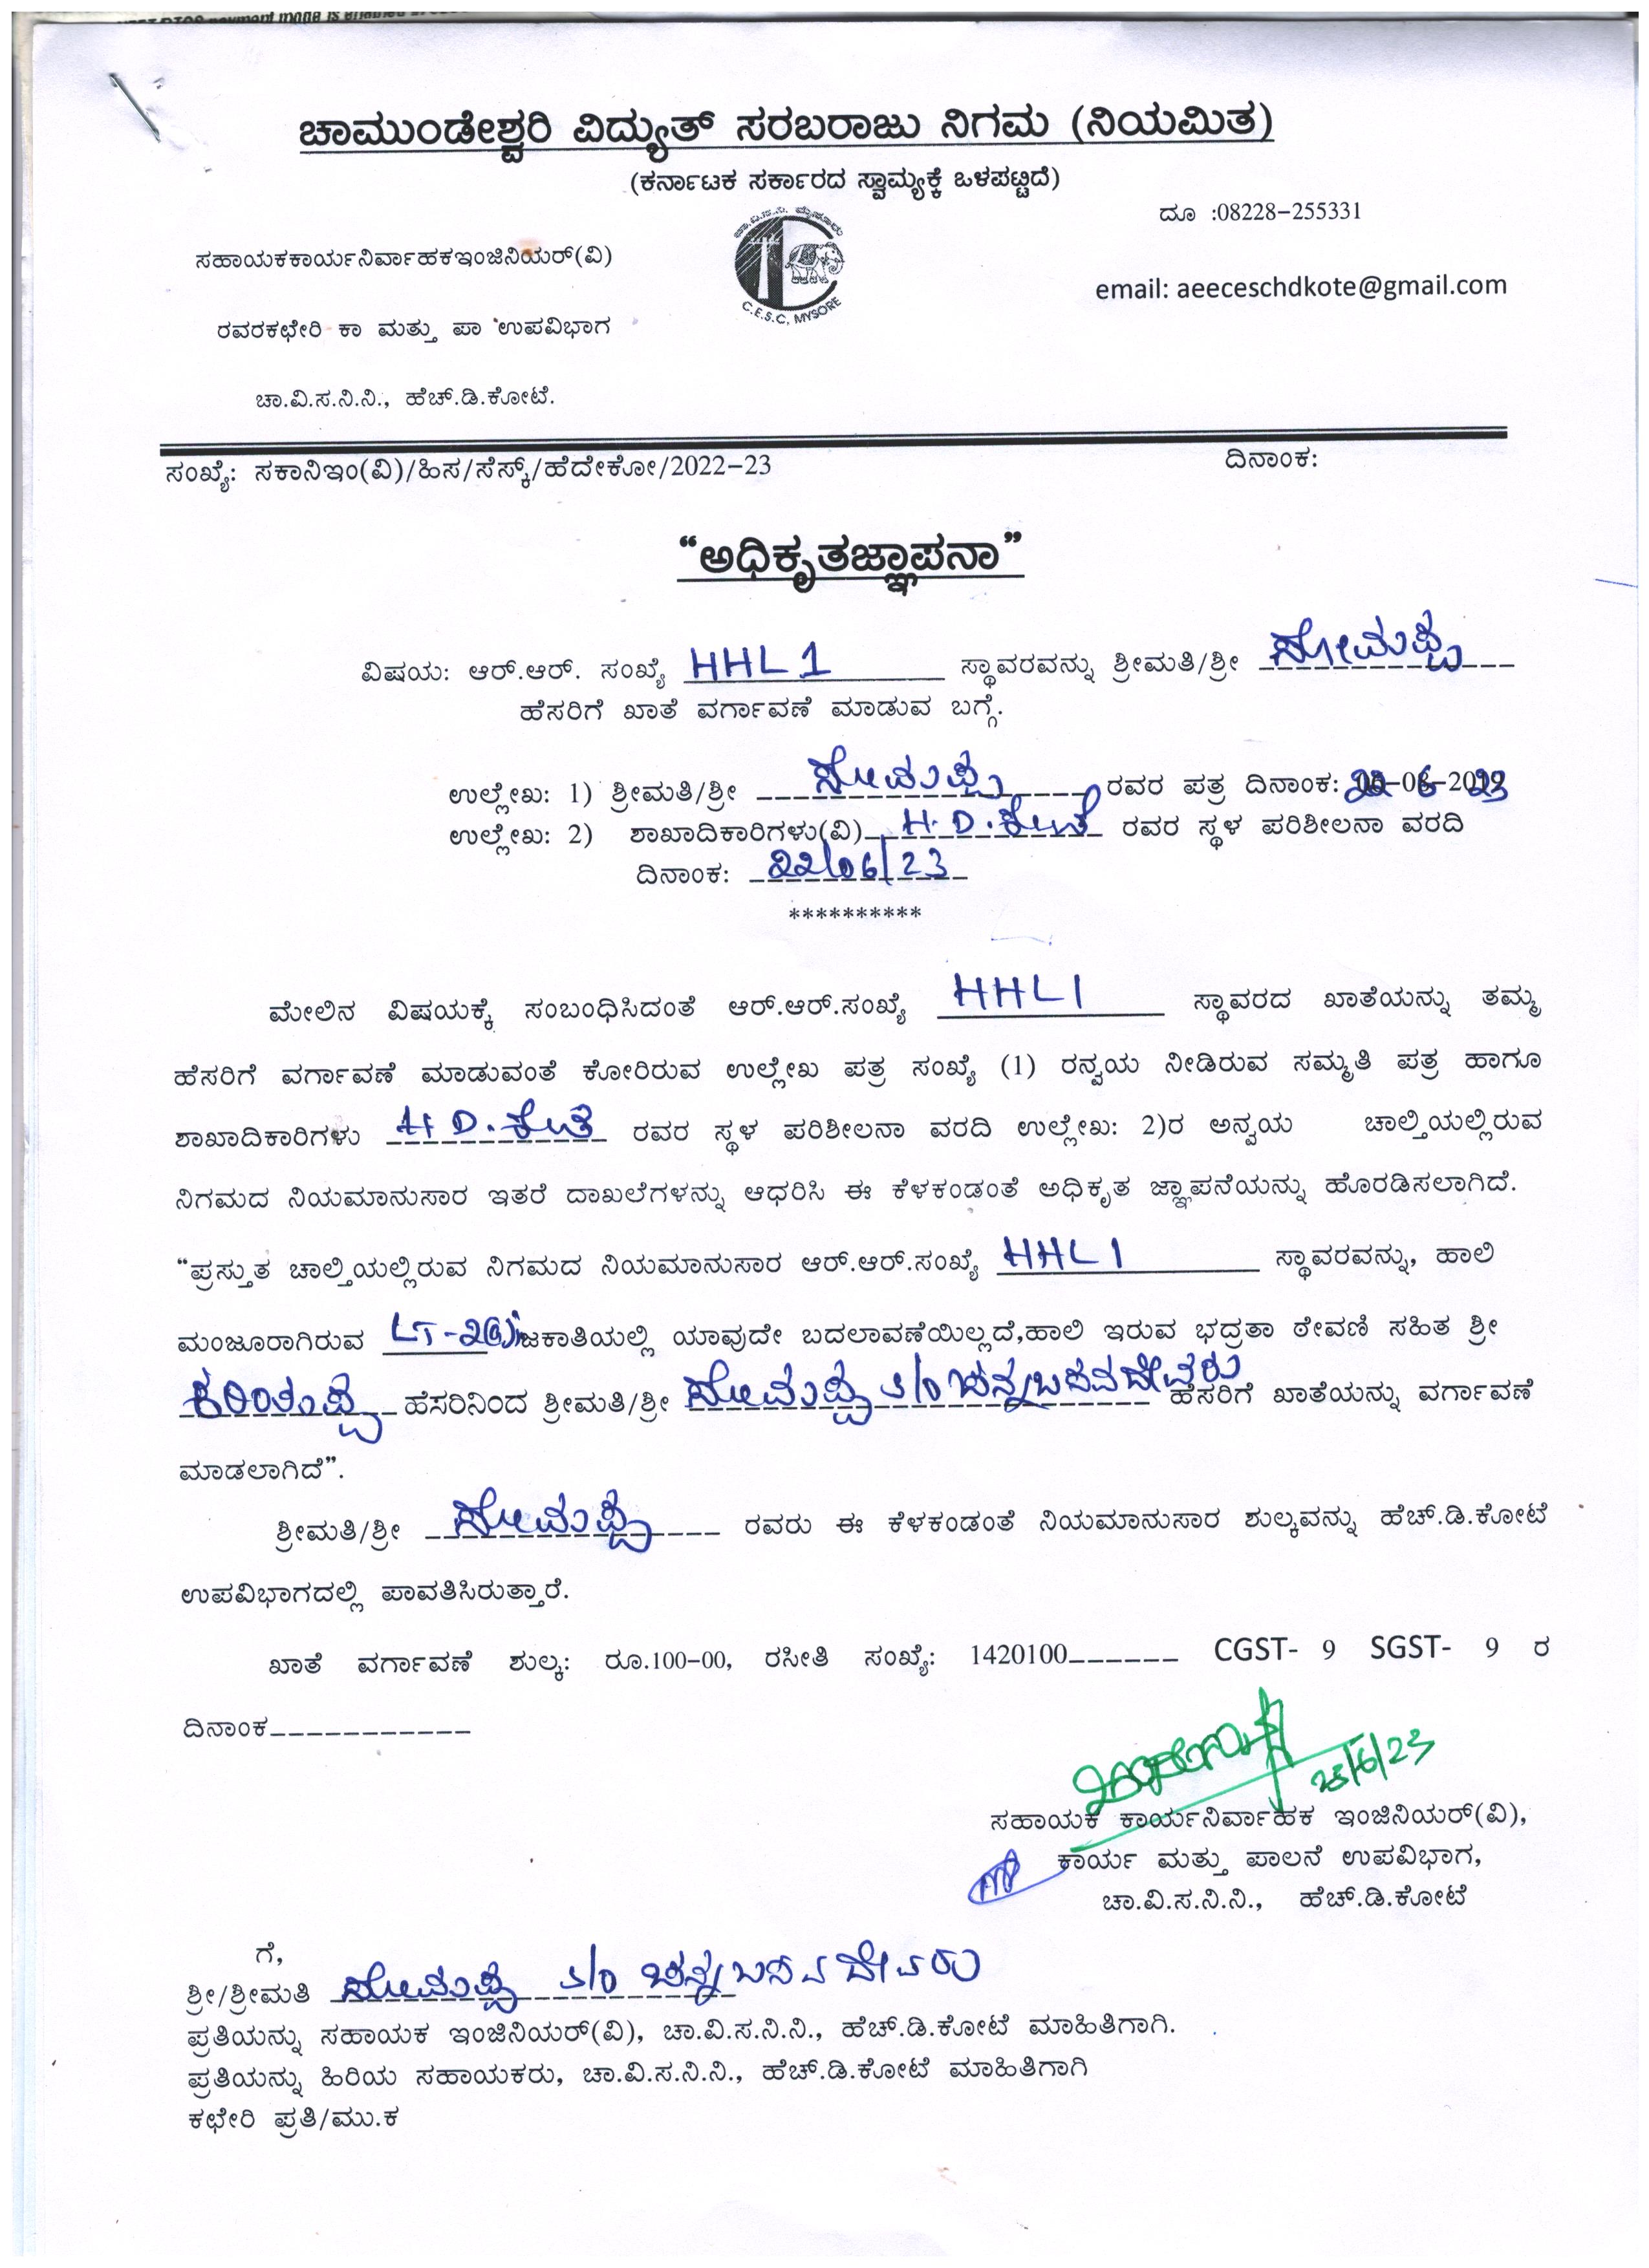 ಚಾಮುಂಡೇಶ್ವರಿ ವಿದ್ಯುತ್ ಸರಬರಾಜು ನಿಗಮ (ನಿಯಮಿತ)
(ಕರ್ನಾಟಕ ಸರ್ಕಾರದ ಸ್ವಾಮ್ಯಕ್ಕೆ ಒಳಪಟ್ಟಿದೆ)
ದೂ :08228-255331
ಸಹಾಯಕಕಾರ್ಯನಿರ್ವಾಹಕಇಂಜಿನಿಯರ್(ವಿ)
email: aeeceschdkote@gmail.com
C.E.S.C, MYSORE
ರವರಕಛೇರಿ ಕಾ ಮತ್ತು ಪಾ ಉಪವಿಭಾಗ
ಚಾ.ವಿ.ಸ.ನಿ.ನಿ., ಹೆಚ್.ಡಿ.ಕೋಟೆ.
ಸಂಖ್ಯೆ: ಸಕಾನಿಇಂ(ವಿ)/ಹಿಸ/ಸೆಸ್ಕ್/ಹೆದೇಕೋ/2022-23 ದಿನಾಂಕ:
“ಅಧಿಕೃತಜ್ಞಾಪನಾ”
ವಿಷಯ: ಆರ್.ಆರ್. ಸಂಖ್ಯೆ HHL1 ಸ್ಥಾವರವನ್ನು ಶ್ರೀಮತಿ/ಶ್ರೀ ಸೋಮಪ್ಪ
ಹೆಸರಿಗೆ ಖಾತೆ ವರ್ಗಾವಣೆ ಮಾಡುವ ಬಗ್ಗೆ.
ಉಲ್ಲೇಖ: 1) ಶ್ರೀಮತಿ/ಶ್ರೀ ಸೋಮಪ್ಪ ರವರ ಪತ್ರ ದಿನಾಂಕ:
ಉಲ್ಲೇಖ: 2) ಶಾಖಾದಿಕಾರಿಗಳು(ವಿ) H.D.ಕೋಟೆ ರವರ ಸ್ಥಳ ಪರಿಶೀಲನಾ ವರದಿ
ದಿನಾಂಕ: 22/06/23
**********
ಮೇಲಿನ ವಿಷಯಕ್ಕೆ ಸಂಬಂಧಿಸಿದಂತೆ ಆರ್.ಆರ್.ಸಂಖ್ಯೆ HHL1 ಸ್ಥಾವರದ ಖಾತೆಯನ್ನು ತಮ್ಮ
ಹೆಸರಿಗೆ ವರ್ಗಾವಣೆ ಮಾಡುವಂತೆ ಕೋರಿರುವ ಉಲ್ಲೇಖ ಪತ್ರ ಸಂಖ್ಯೆ (1) ರನ್ವಯ ನೀಡಿರುವ ಸಮ್ಮತಿ ಪತ್ರ ಹಾಗೂ
ಶಾಖಾದಿಕಾರಿಗಳು H D.ಕೋಟೆ ರವರ ಸ್ಥಳ ಪರಿಶೀಲನಾ ವರದಿ ಉಲ್ಲೇಖ: 2)ರ ಅನ್ವಯ ಚಾಲ್ತಿಯಲ್ಲಿರುವ
ನಿಗಮದ ನಿಯಮಾನುಸಾರ ಇತರೆ ದಾಖಲೆಗಳನ್ನು ಆಧರಿಸಿ ಈ ಕೆಳಕಂಡಂತೆ ಅಧಿಕೃತ ಜ್ಞಾಪನೆಯನ್ನು ಹೊರಡಿಸಲಾಗಿದೆ.
“ಪ್ರಸ್ತುತ ಚಾಲ್ತಿಯಲ್ಲಿರುವ ನಿಗಮದ ನಿಯಮಾನುಸಾರ ಆರ್.ಆರ್.ಸಂಖ್ಯೆ HHL1 ಸ್ಥಾವರವನ್ನು, ಹಾಲಿ
ಮಂಜೂರಾಗಿರುವ ಜಕಾತಿಯಲ್ಲಿ ಯಾವುದೇ ಬದಲಾವಣೆಯಿಲ್ಲದೆ,ಹಾಲಿ ಇರುವ ಭದ್ರತಾ ಠೇವಣಿ ಸಹಿತ ಶ್ರೀ
ಕರಿಯಪ್ಪ ಹೆಸರಿನಿಂದ ಶ್ರೀಮತಿ/ಶ್ರೀ ಸೋಮಪ್ಪ s/o ಚನ್ನಬಸವದೇವರು ಹೆಸರಿಗೆ ಖಾತೆಯನ್ನು ವರ್ಗಾವಣೆ
ಮಾಡಲಾಗಿದೆ”.
ಶ್ರೀಮತಿ/ಶ್ರೀ ಸೋಮಪ್ಪ ರವರು ಈ ಕೆಳಕಂಡಂತೆ ನಿಯಮಾನುಸಾರ ಶುಲ್ಕವನ್ನು ಹೆಚ್.ಡಿ.ಕೋಟೆ
ಉಪವಿಭಾಗದಲ್ಲಿ ಪಾವತಿಸಿರುತ್ತಾರೆ.
ಖಾತೆ ವರ್ಗಾವಣೆ ಶುಲ್ಕ: ರೂ.100-00, ರಸೀತಿ ಸಂಖ್ಯೆ: 1420100______ CGST- 9 SGST- 9 ರ
ದಿನಾಂಕ___________
23/6/23
ಸಹಾಯಕ ಕಾರ್ಯನಿರ್ವಾಹಕ ಇಂಜಿನಿಯರ್(ವಿ),
ಕಾರ್ಯ ಮತ್ತು ಪಾಲನೆ ಉಪವಿಭಾಗ,
ಚಾ.ವಿ.ಸ.ನಿ.ನಿ., ಹೆಚ್.ಡಿ.ಕೋಟೆ
ಗೆ,
ಶ್ರೀ/ಶ್ರೀಮತಿ ಸೋಮಪ್ಪ s/o ಚನ್ನಬಸವದೇವರು
ಪ್ರತಿಯನ್ನು ಸಹಾಯಕ ಇಂಜಿನಿಯರ್(ವಿ), ಚಾ.ವಿ.ಸ.ನಿ.ನಿ., ಹೆಚ್.ಡಿ.ಕೋಟೆ ಮಾಹಿತಿಗಾಗಿ.
ಪ್ರತಿಯನ್ನು ಹಿರಿಯ ಸಹಾಯಕರು, ಚಾ.ವಿ.ಸ.ನಿ.ನಿ., ಹೆಚ್.ಡಿ.ಕೋಟೆ ಮಾಹಿತಿಗಾಗಿ
ಕಛೇರಿ ಪ್ರತಿ/ಮು.ಕ